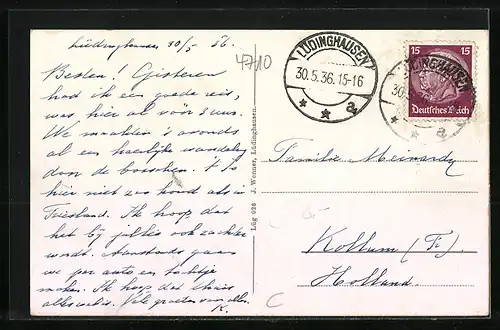 Lüdinghausen 30/5 36.
4710
Besten! Gisteren
had ik een goede reis,
was, hier al vóór 5 uur.
We maakten 's avonds
al een heerlijke wandeling
door de bosschen. 't Is
hier niet zoo koud als in
Friesland. Ik hoop dat
het bij jullie ook zachter
wordt. Aanstonds gaan
we per auto een tochtje
maken. Ik hoop dat thuis
alles wel is. Vele groeten van allen.
K.
Lüg 026 J. Wenner, Lüdinghausen.
LÜDINGHAUSEN
30.5.36.15-16
a
15 15
Deutsches Reich
LÜDINGHAUSEN
30.
a
Familie Meinardy
Kollum (Fr.)
Holland.
C